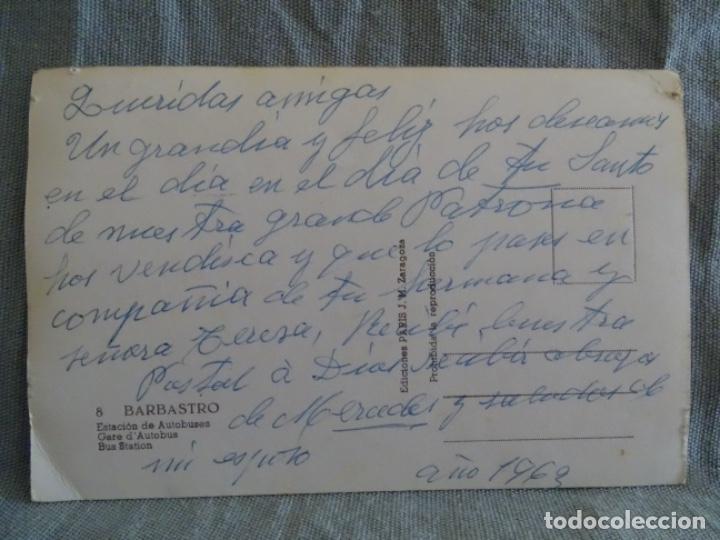 Queridas amigas
Un grandia y feliz hos deseamos
en el dia en el dia de tu Santo
de nuestra grande Patrona
hos vendisca y que lo pases en
compañia de tu hermana y
señora Teresa, Recibi buestra
Postal á Dios
de Mercedes y saludos de
mi esposo
año 1969
8 BARBASTRO
Estación de Autobuses
Gare d'Autobus
Bus Station
Ediciones PARIS J. M. Zaragoza
Prohibida la reproducción
todocoleccion.net